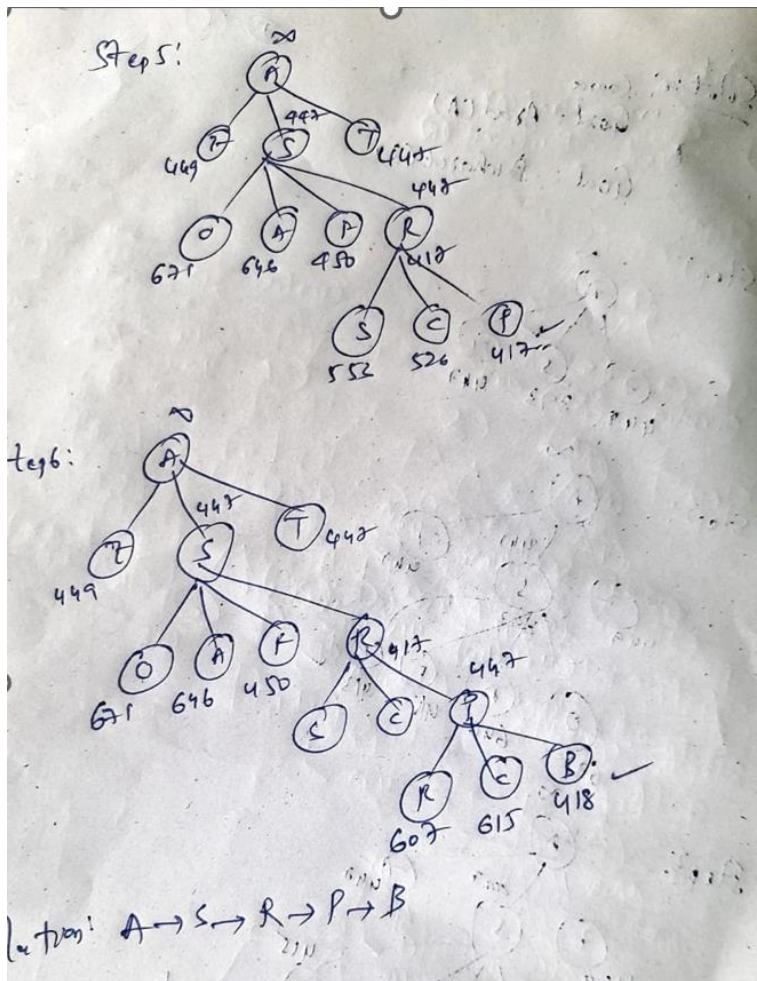 Step 5:
∞
A
447
Z S T
449 447
447
O A F R
671 646 450 417
S C P
553 526 417
∞
tep 6:
A
447
Z S T
449 447
O A F R 417
671 646 450
447
S C P
R C B
607 615 418
lution: A → S → R → P → B